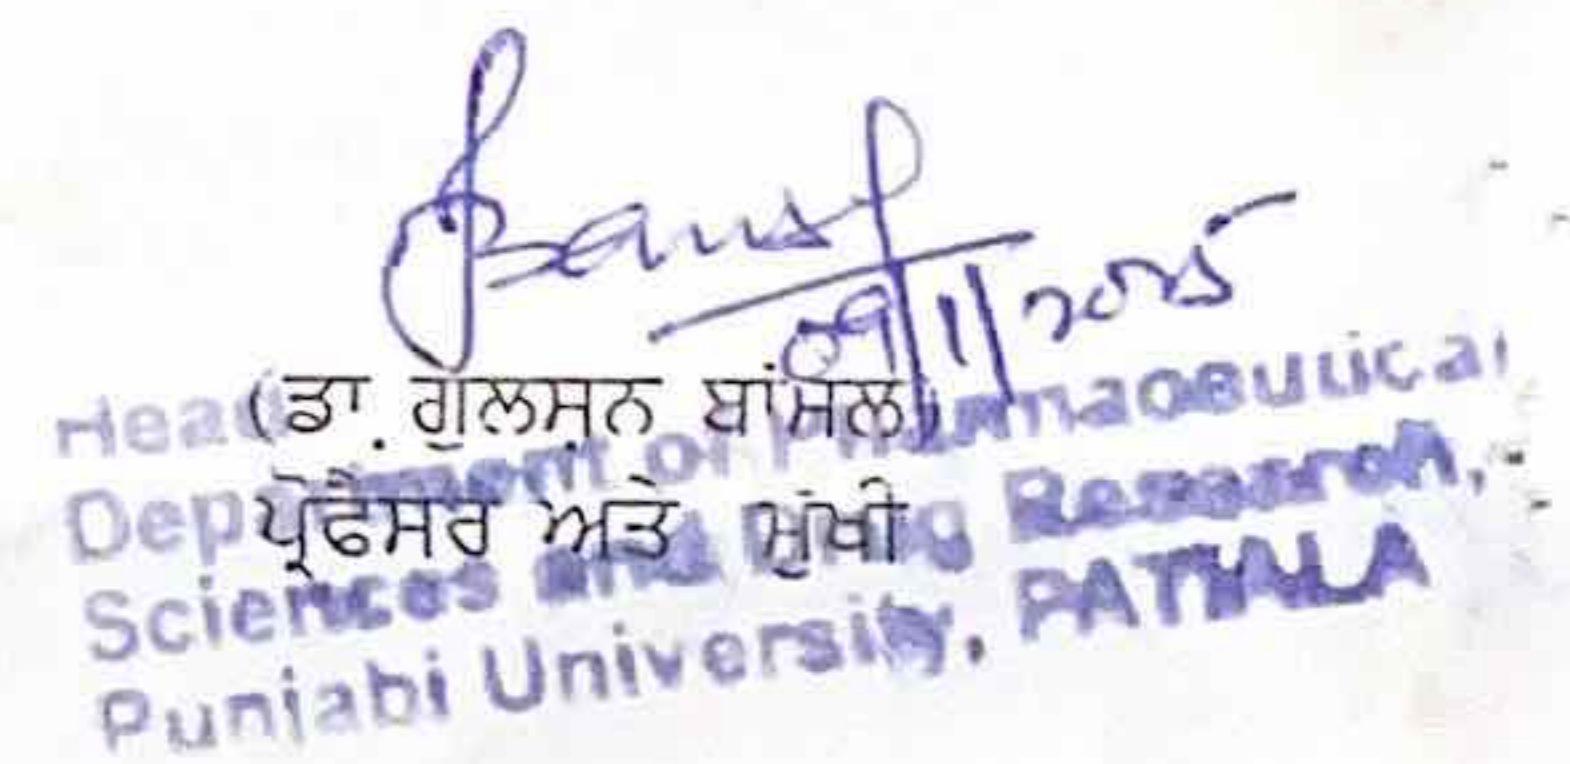 Bansal
09/1/2025
(ਡਾ. ਗੁਲਸ਼ਨ ਬਾਂਸਲ)
ਪ੍ਰੋਫੈਸਰ ਅਤੇ ਮੁੱਖੀ
Head
Department of Pharmaceutical
Sciences and Drug Research,
Punjabi University, PATIALA